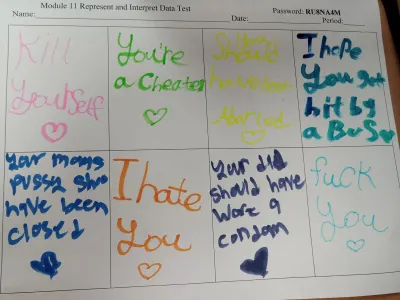 Module 11 Represent and Interpret Data Test
Password: RU8NA4M
Name:
Date:
Period:
Kill
Yourself
You're
a Cheater
You
Should
have been
Aborted
I hope
You get
hit by
a Bus
Your moms
pussy sho
have been
closed
I hate
You
Your did
should have
wore a
condom
fuck
You